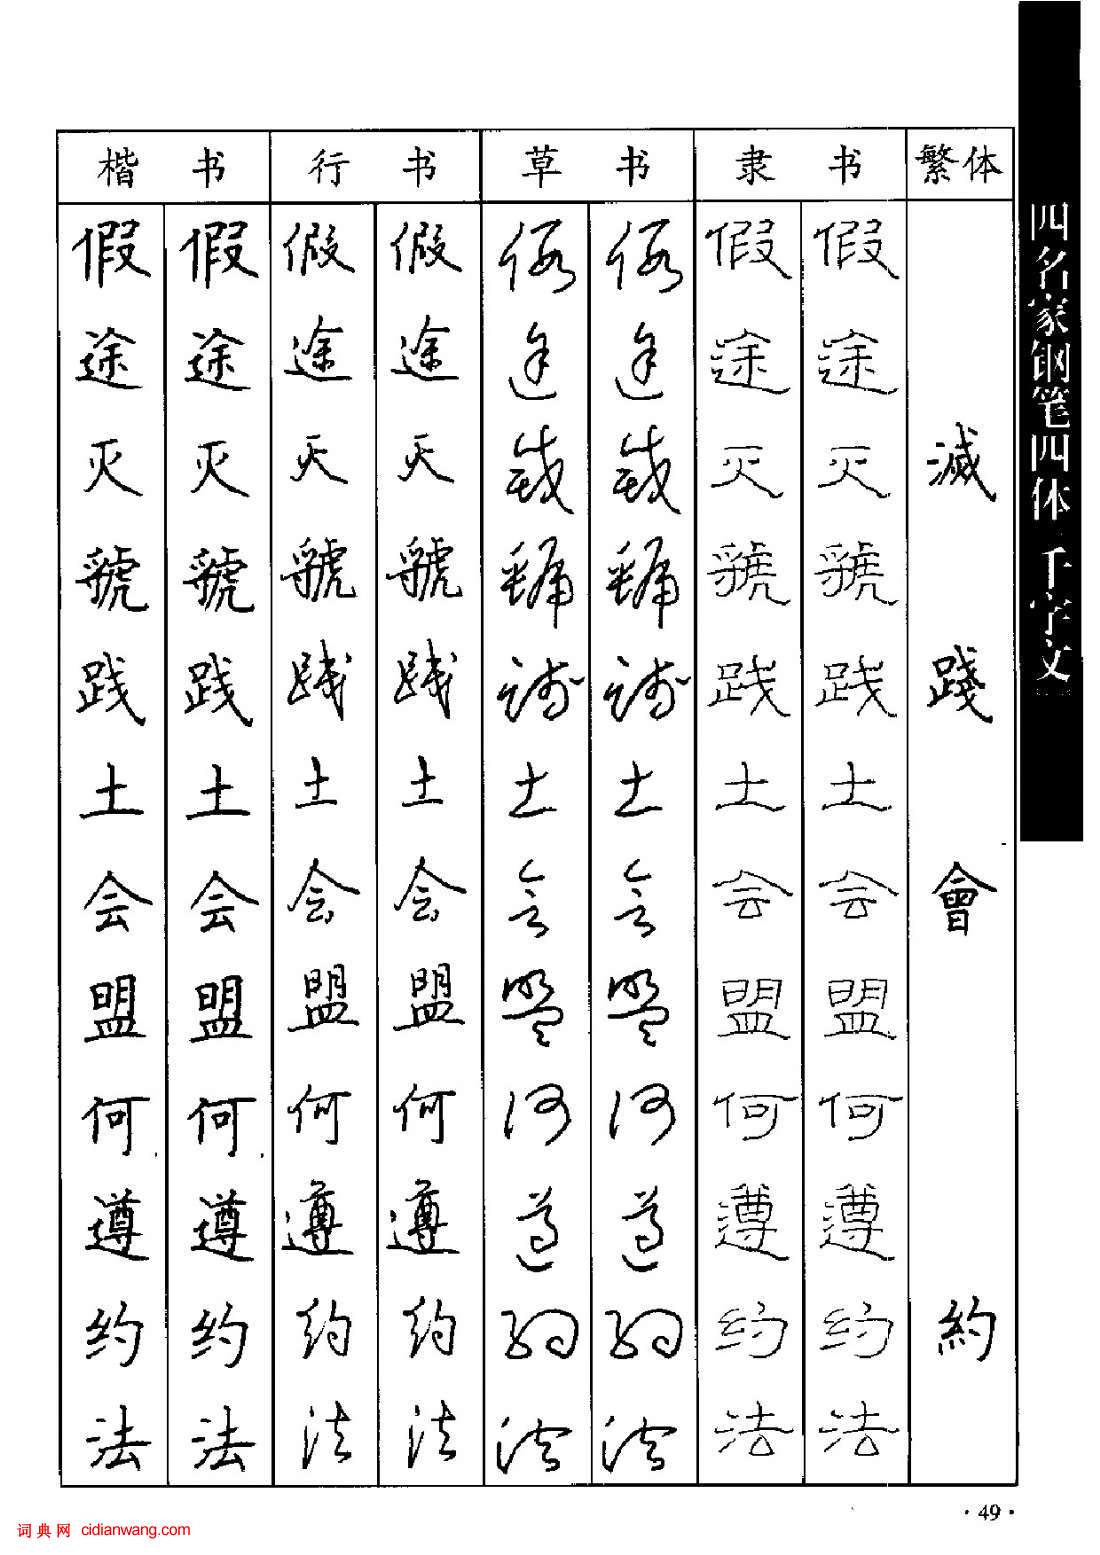 楷书 行书 草书 隶书 繁体
假 假 假 假 假 假 假 假
途 途 途 途 途 途 途 途
灭 灭 灭 灭 灭 灭 灭 灭 滅
虢 虢 虢 虢 虢 虢 虢 虢
践 践 践 践 践 践 践 践 踐
土 土 土 土 土 土 土 土
会 会 会 会 会 会 会 会 會
盟 盟 盟 盟 盟 盟 盟 盟
何 何 何 何 何 何 何 何
遵 遵 遵 遵 遵 遵 遵 遵
约 约 约 约 约 约 约 约 約
法 法 法 法 法 法 法 法
四名家钢笔四体 千字文
·49·
词典网 cidianwang.com